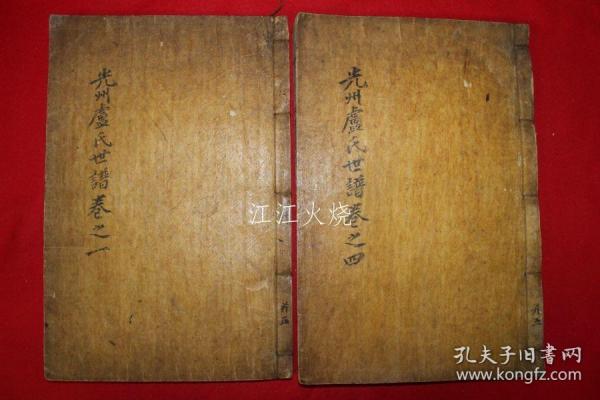 光州盧氏世譜卷之一
光州盧氏世譜卷之四
江江火烧
共五
共五
孔夫子旧书网
www.kongfz.com